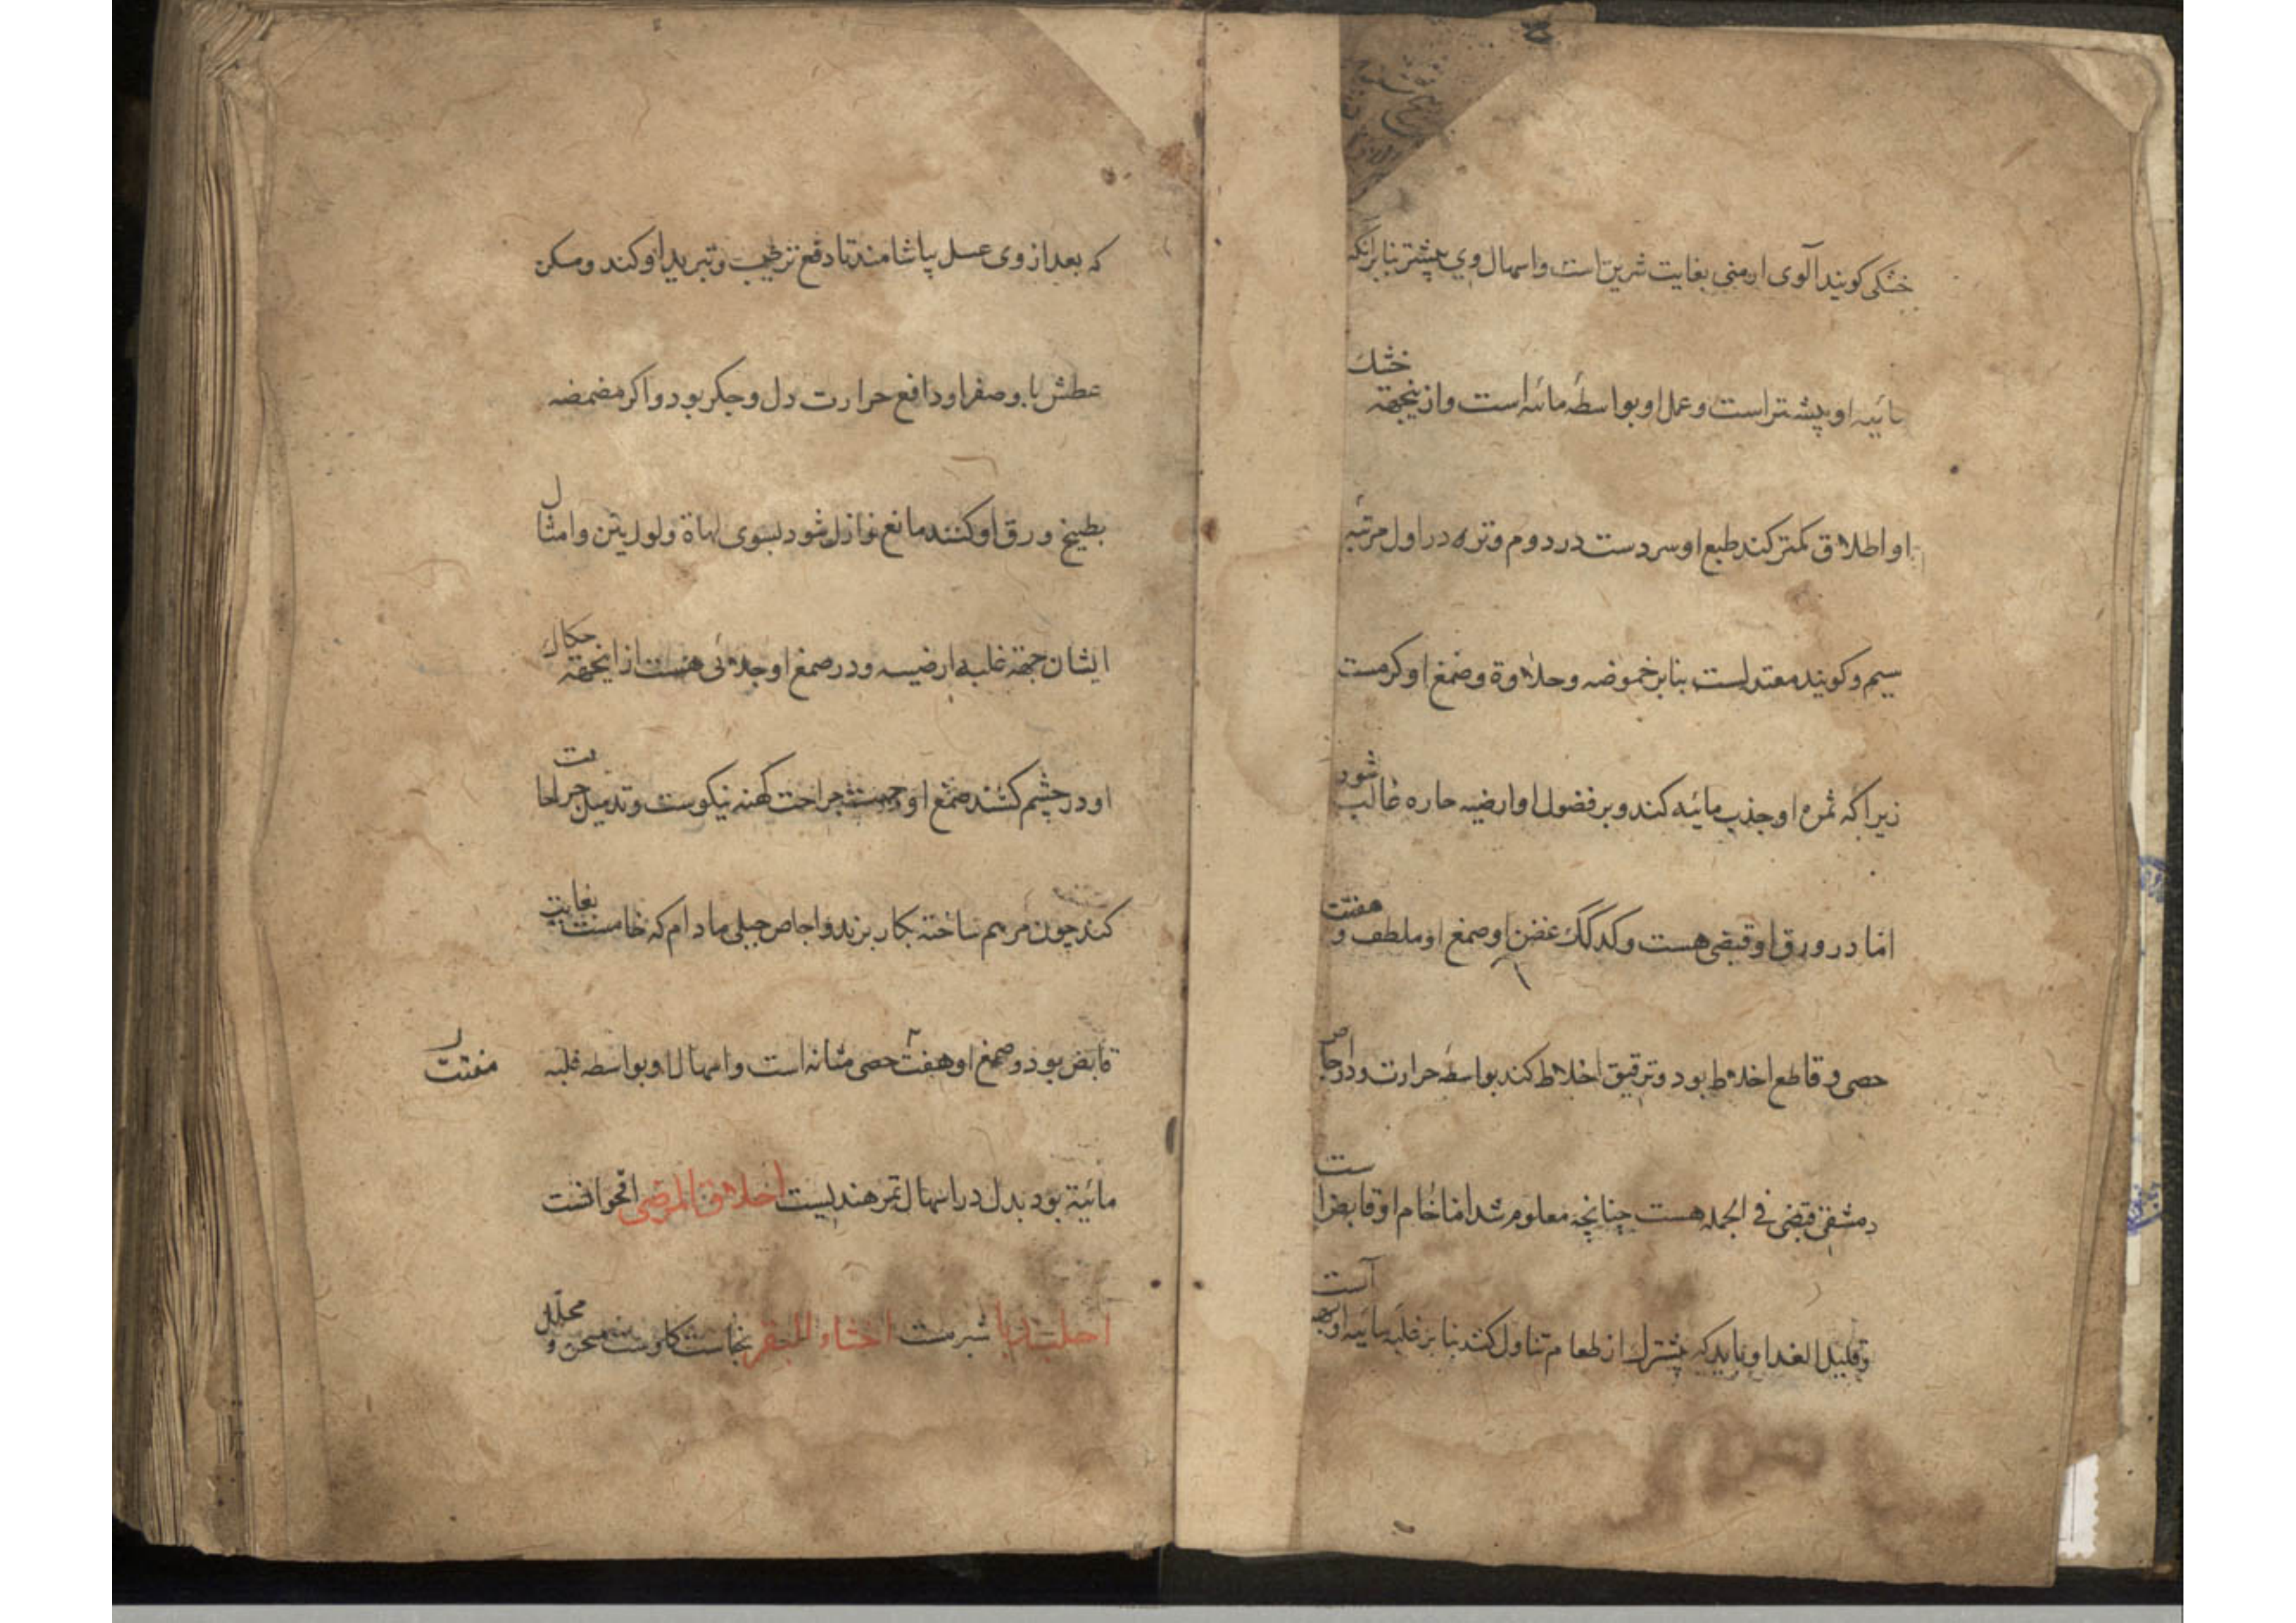 خشکی کویند آلوی ارمنی بغایت شرین است واسهال وی پیشتر بنابرانکه
مائیه او پیشتر است وعمل او بواسطه مائیه است وازینجهة خشک
او اطلاق کمتر کند طبع او سردست در دوم وتره در اول مرتبه
سیم وکویند معتدلست بنابر خموضه وحلاوة وصمغ او کرمست
زیراکه ثمره او جذب مائیه کند وبر فضول او ارضیه حاره غالب شود
اما در ورق او قبضی هست وکدلک غضن او وصمغ او ملطف و مفتت
حصی و قاطع اخلاط بود وترقیق اخلاط کند بواسطه حرارت ودر اجاص
دمشقی قبضی فی الجمله هست چنانچه معلوم شد اما خام او قابض است
وقلیل الغدا و باید که پیشترک از طعام تناول کنند بنابر غلبه مائیه او است
که بعد از وی عسل بیاشامند تا دفع ترطیب وتبرید او کند ومسکن
عطش با وصفرا ودافع حرارت دل وجکر بود واکر مضمضه
بطبیخ ورق او کنند مانع نوازل شود بسوی لهاة ولوزیتن وامثال
ایشان جهة غلبه ارضیه ودر صمغ او جلائی هست از اینجهة حکاک
او در چشم کشند صمغ او جهت جراحت کهنه نیکوست وتدمیل جراحات
کند چون مرهم ساخته بکار برند واجاص جبلی مادام که خامست بغایت
قابض بود وصمغ او مفتت حصی مثانه است واسهال او بواسطه غلبه
مفتت
مائیة بود بدل در اسهال تمر هندیست اخلاق المرضی اقحوانست
شبرمست اخثاء البقر نجاست کاوست مسخن و محلل